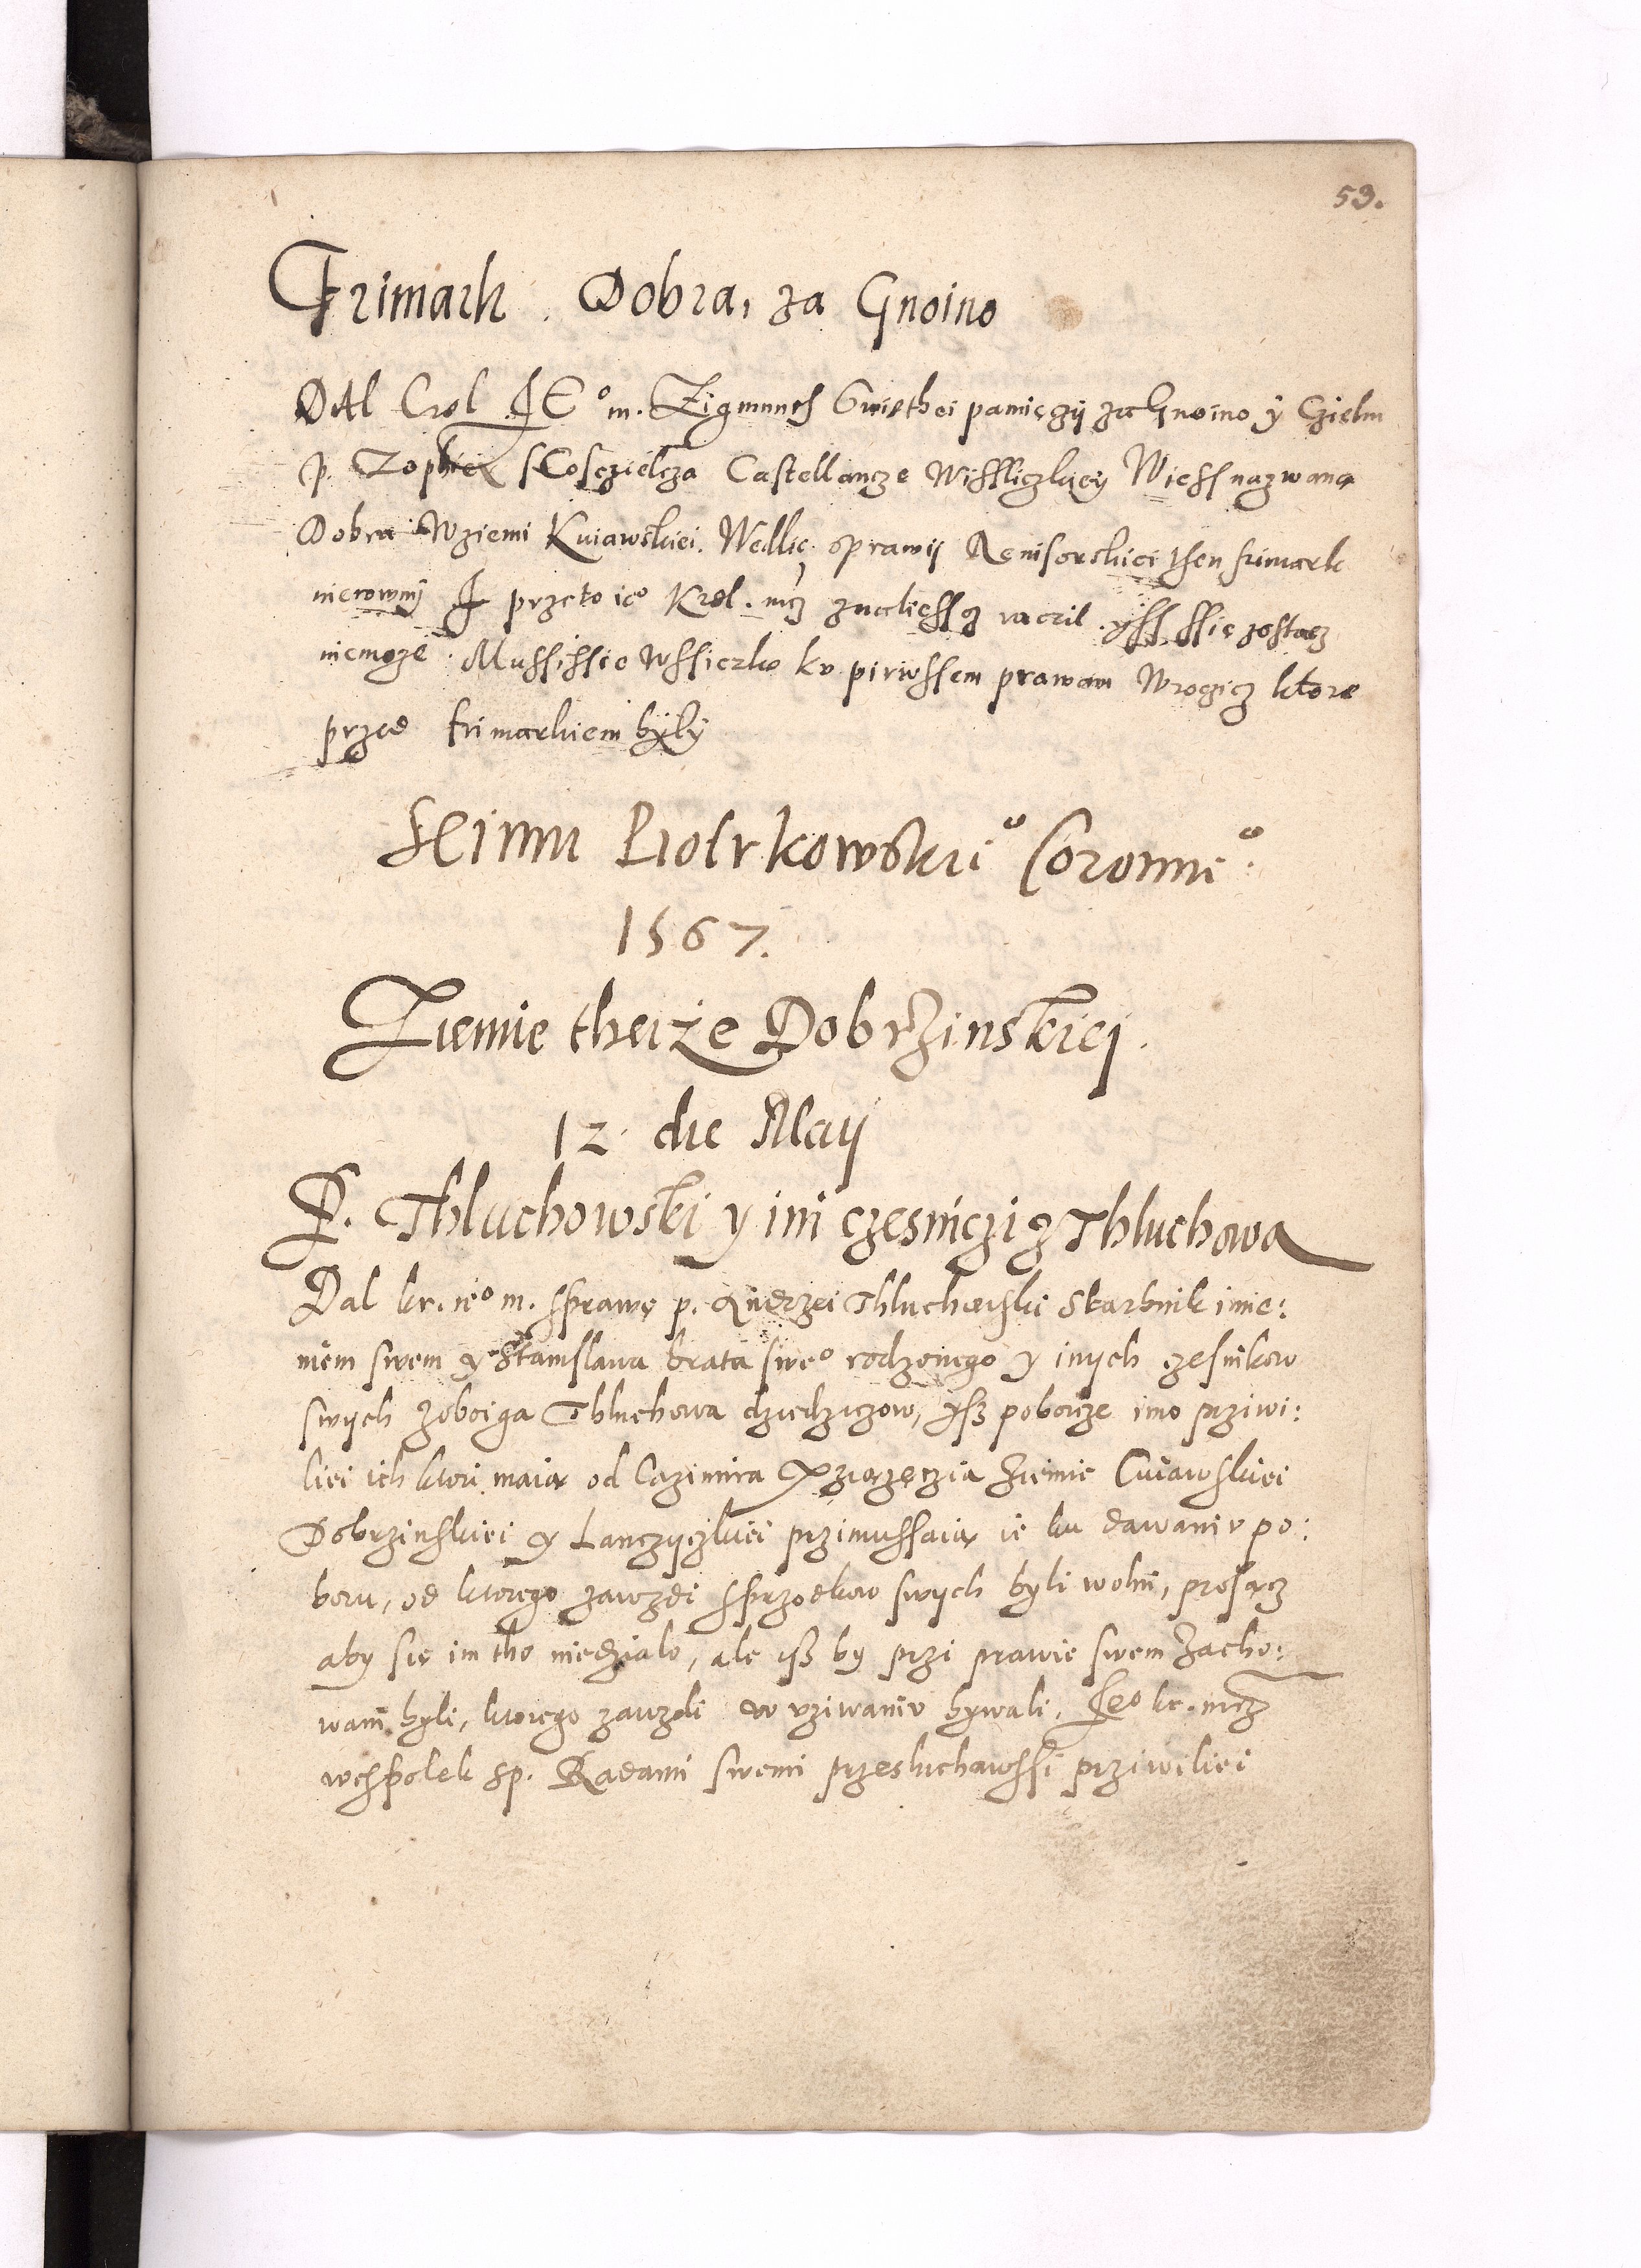 53.
Frimark. Dobra, za Gnoino
Dał Crol JEº m. Zigmunth Swiethei pamięczij za Gnoino ÿ Czielm
p. Zophiei sCosczielcza Castellancze Wissliczkiey Wiess nazwaną
Dobra Wziemi Kuiawskiei. Wedlie sprawij Revisorskiei then frimark
nierowny A przeto ieº Krol. mcz znalieszcz raczil. ysz ssie zostacz
niemoze. Mussissie Wssiczko kv pirwssem prawam Wroczicz ktore
przed frimarkiem byly
Seimu Piotrkowskieº Coronneº
1567.
Ziemie theize Dobrzinskiej.
12. die Maij
P. Thluchowski y ini czesniczi z Thluchowa
Dal kr. ieº m. sprawę p. Andrzei Thluchowski Skarbnik imie:
niem swem y Stanislawa brata sweº rodzonego y inych czesnikow
swych zoboiga Thluchowa dziedziczow, ysz poborcze imo prziwi:
liei ich ktori maią od Cazimira Xziązęczia Ziemie Cuiawskiei
Dobrzinskiei y Lanczyczkiei przimussaią ie ku dawaniv po:
boru, od ktorego zawzdi sprzodkow swych byli wolni, prosącz
aby się im tho niedzialo, ale isz by przi prawie swem Zacho:
wani byli, ktorego zawzdi w vziwaniv bywali. Jeº kr. mcz
wespolek sp. Radami swemi przesluchawssi prziwiliei